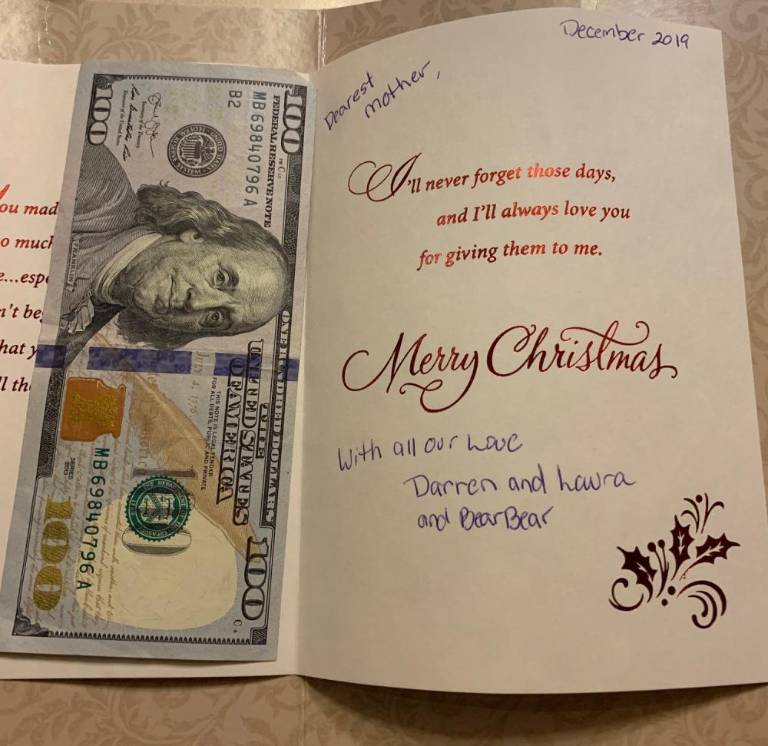 ou mad
o much
e...espe
n't be
hat y
l th
100
FEDERAL RESERVE NOTE
MB 69840796 A
B2
100
FRANKLIN
ONE HUNDRED DOLLARS
THE
UNITED STATES
OF AMERICA
THIS NOTE IS LEGAL TENDER
FOR ALL DEBTS, PUBLIC AND PRIVATE
MB 69840796 A
SERIES
2013
100
100
December 2019
Dearest
mother,
I'll never forget those days,
and I'll always love you
for giving them to me.
Merry Christmas
With all our Love
Darren and Laura
and BearBear